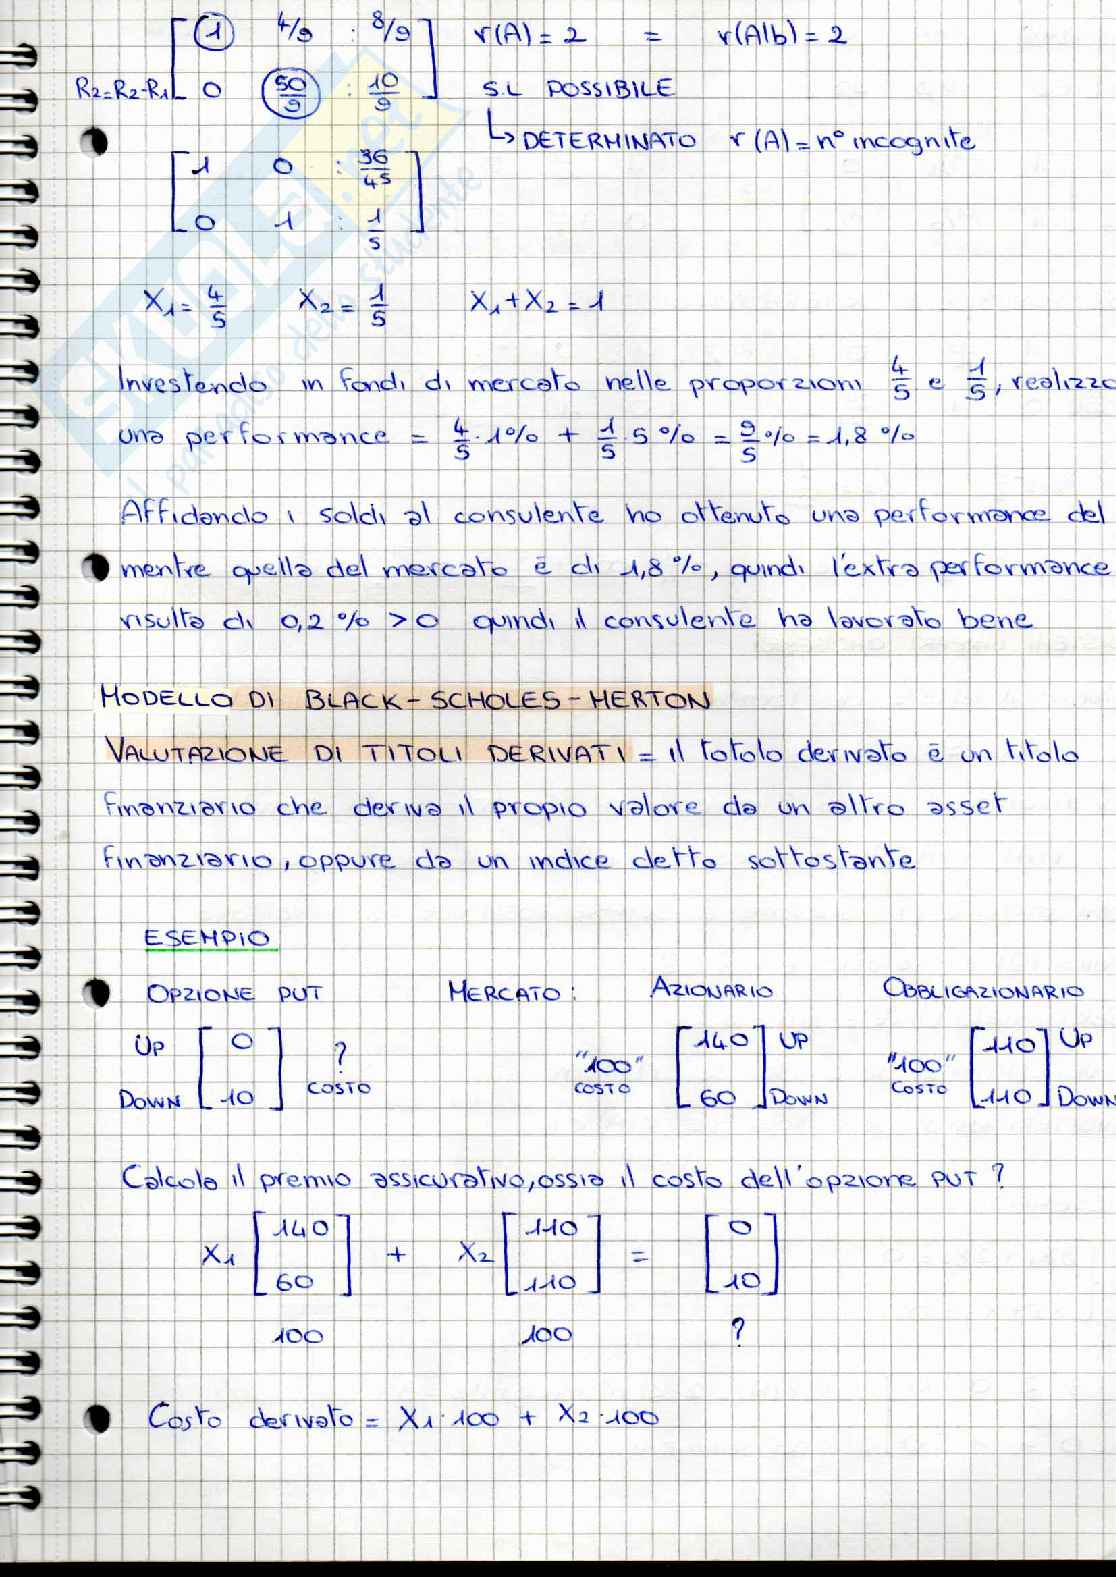 [ 1 4/9 : 8/9 ] r(A) = 2 = r(A|b) = 2
R2=R2-R1 [ 0 50/9 : 10/9 ] S.L POSSIBILE
↳ DETERMINATO r(A) = n° incognite
[ 1 0 : 36/45 ]
[ 0 1 : 1/5 ]
X1 = 4/5 X2 = 1/5 X1 + X2 = 1
Investendo in fondi di mercato nelle proporzioni 4/5 e 1/5, realizzo
una performance = 4/5 · 1% + 1/5 · 5% = 9/5 % = 1,8 %
Affidando i soldi al consulente ho ottenuto una performance del
mentre quella del mercato è di 1,8 %, quindi l'extra performance
risulta di 0,2 % > 0 quindi il consulente ha lavorato bene
MODELLO DI BLACK - SCHOLES - MERTON
VALUTAZIONE DI TITOLI DERIVATI = il totolo derivato è un titolo
finanziario che deriva il propio valore da un altro asset
finanziario, oppure da un indice detto sottostante
ESEMPIO
OPZIONE PUT MERCATO: AZIONARIO OBBLIGAZIONARIO
UP [ 0 ] ? "100" [ 140 ] UP "100" [ 110 ] UP
DOWN [ 10 ] COSTO COSTO [ 60 ] DOWN COSTO [ 110 ] DOWN
Calcola il premio assicurativo, ossia il costo dell'opzione PUT ?
X1 [ 140 60 ] + X2 [ 110 110 ] = [ 0 10 ]
100 100 ?
Costo derivato = X1 · 100 + X2 · 100
SKUOLA.net